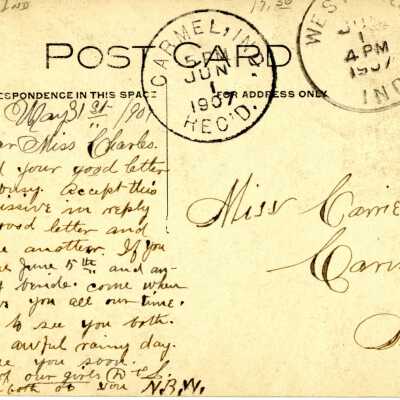 IND
17,30
POST CARD
CARMEL, IND.
5 PM
JUN
1
1907
REC'D.
WES
JU
1
4 PM
1907
IND
RESPONDENCE IN THIS SPACE
FOR ADDRESS ONLY
May 31st 190
Miss Charles.
your good letter
Accept this
issive in reply
good letter and
another. If you
June 5th and
beside. come when
you all our time.
to see you both.
awful rainy day.
you soon.
of our girls
both of you N.B.W.
Miss Carrie